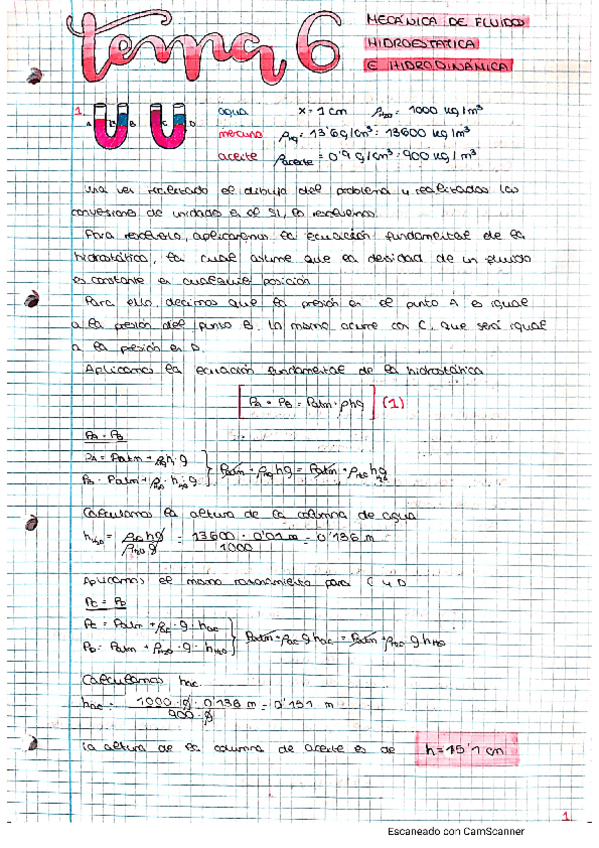 tema 6
MECÁNICA DE FLUIDOS
HIDROESTÁTICA
E HIDRODINÁMICA
1.
A B C D
agua x = 1 cm ρH2O = 1000 kg/m³
mercurio ρHg = 13'6 g/cm³ = 13600 kg/m³
aceite ρaceite = 0'9 g/cm³ = 900 kg/m³
Una vez realizado el dibujo del problema y realizadas las
conversiones de unidades en el SI, lo resolvemos.
Para resolverlo, aplicaremos la ecuación fundamental de la
hidrostática, la cual asume que la densidad de un fluido
es constante en cualquier posición
Para ello, decimos que la presión en el punto A es igual
a la presión del punto B. Lo mismo ocurre con C, que será igual
a la presión en D.
Aplicamos la ecuación fundamental de la hidrostática
[PA = PB = Patm + ρhg] (1)
PA = PB
PA = Patm + ρHg h · g
PB = Patm + ρH2O · hH2O · g } Patm + ρHg hg = Patm + ρH2O hH2O g
Calculamos la altura de la columna de agua
hH2O = ρHg h g / ρH2O g = 13600 · 0'01 m / 1000 = 0'136 m
Aplicamos el mismo razonamiento para C y D
PC = PD
PC = Patm + ρac · g · hac
PD = Patm + ρH2O · g · hH2O } Patm + ρac g hac = Patm + ρH2O · g hH2O
Calculamos hac
hac = 1000 · g · 0'136 m / 900 · g = 0'151 m
La altura de la columna de aceite es de h = 15'1 cm
1
Escaneado con CamScanner